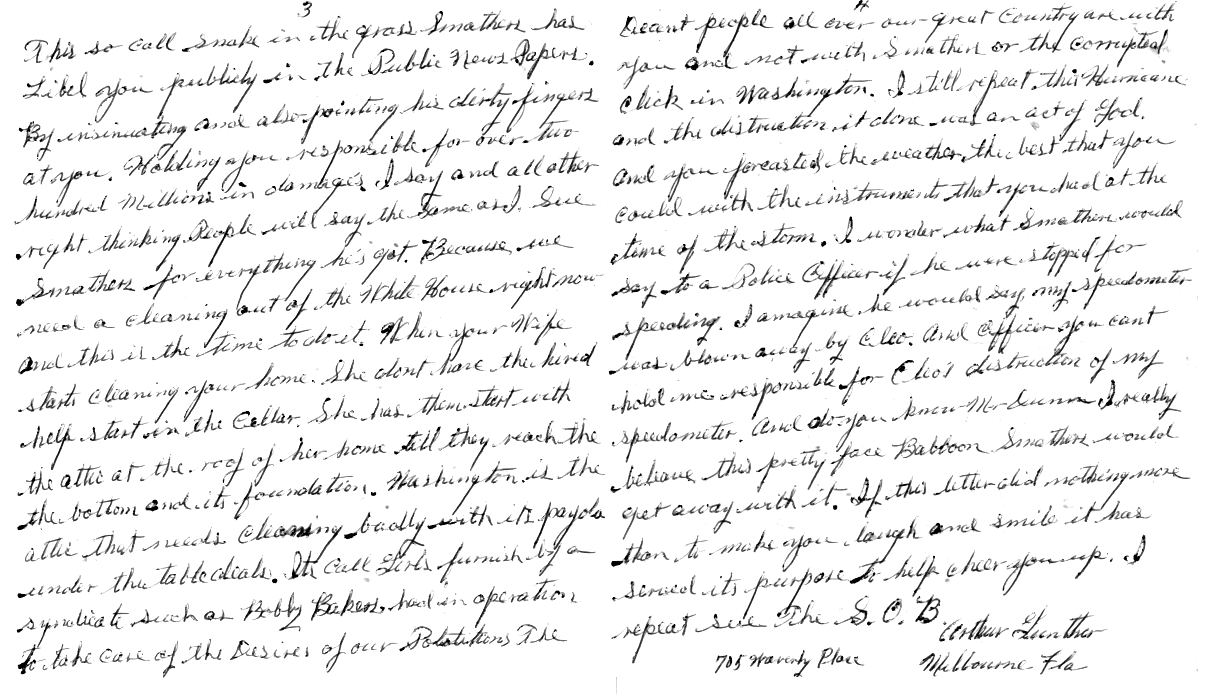 3
This so call snake in the grass Smathers has
Libel you publicly in the Public News Papers.
By insinuating and also pointing his dirty fingers
at you. Holding you responsible for over two
hundred Millions in damages. I say and all other
right thinking People will say the same as I. Sue
Smathers for everything he's got. Because we
need a cleaning out of the White House right now
and this is the time to do it. When your Wife
starts cleaning your home. She dont have the hired
help start in the Cellar. She has them start with
the attic at the roof of her home till they reach the
the bottom and its foundation. Washington is the
attic that needs cleaning badly with its payola
under the table deals. Its Call Girls furnish by a
syndicate such as Bobby Bakers, had in operation
to take care of the Desires of our The
4
Decent people all over our great Country are with
you and not with Smathers or the corrupted
click in Washington. I still repeat this Hurricane
and the distruction it done was an act of God.
And you forcasted the weather the best that you
could with the instruments that you had at the
time of the storm. I wonder what Smathers would
say to a Police Officer if he were stopped for
speeding. I amagine he would say my speedometer
was blown away by Cleo. And Officer you cant
hold me responsible for Cleo's distruction of my
speedometer. And do you know Mr Dunn I really
beleave this pretty face Babboon Smathers would
get away with it. If this letter did nothing more
than to make you laugh and smile it has
served its purpose to help cheer you up. I
repeat sue The S.O.B.
Arthur Gunther
705 Waverly Place
Melbourne Fla